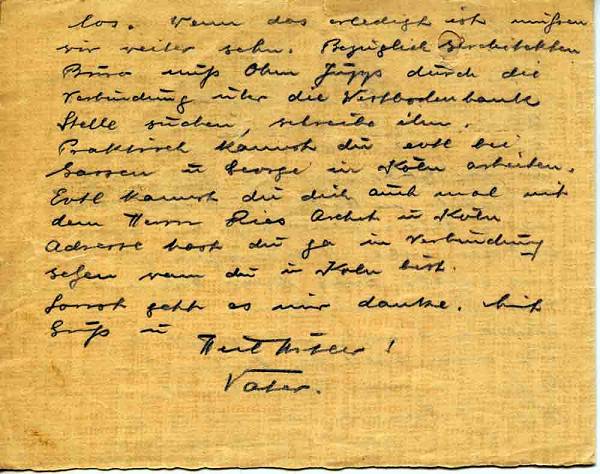 los. Wenn das erledigt ist müssen
wir weiter sehn. Bezüglich Architekten
Büro muß Ohm Jupp durch die
Verbindung über die Westbodenbank
Stelle suchen, schreibe ihm.
Praktisch kannst du evtl bei
u George in Köln arbeiten.
Evtl kannst du dich auch mal mit
dem Herrn Ries Archt u Köln
Adresse hast du ja in Verbindung
setzen wann du in Köln bist.
Sonst geht es mir danke. Mit
Gruß u
Heil Hitler!
Vater.